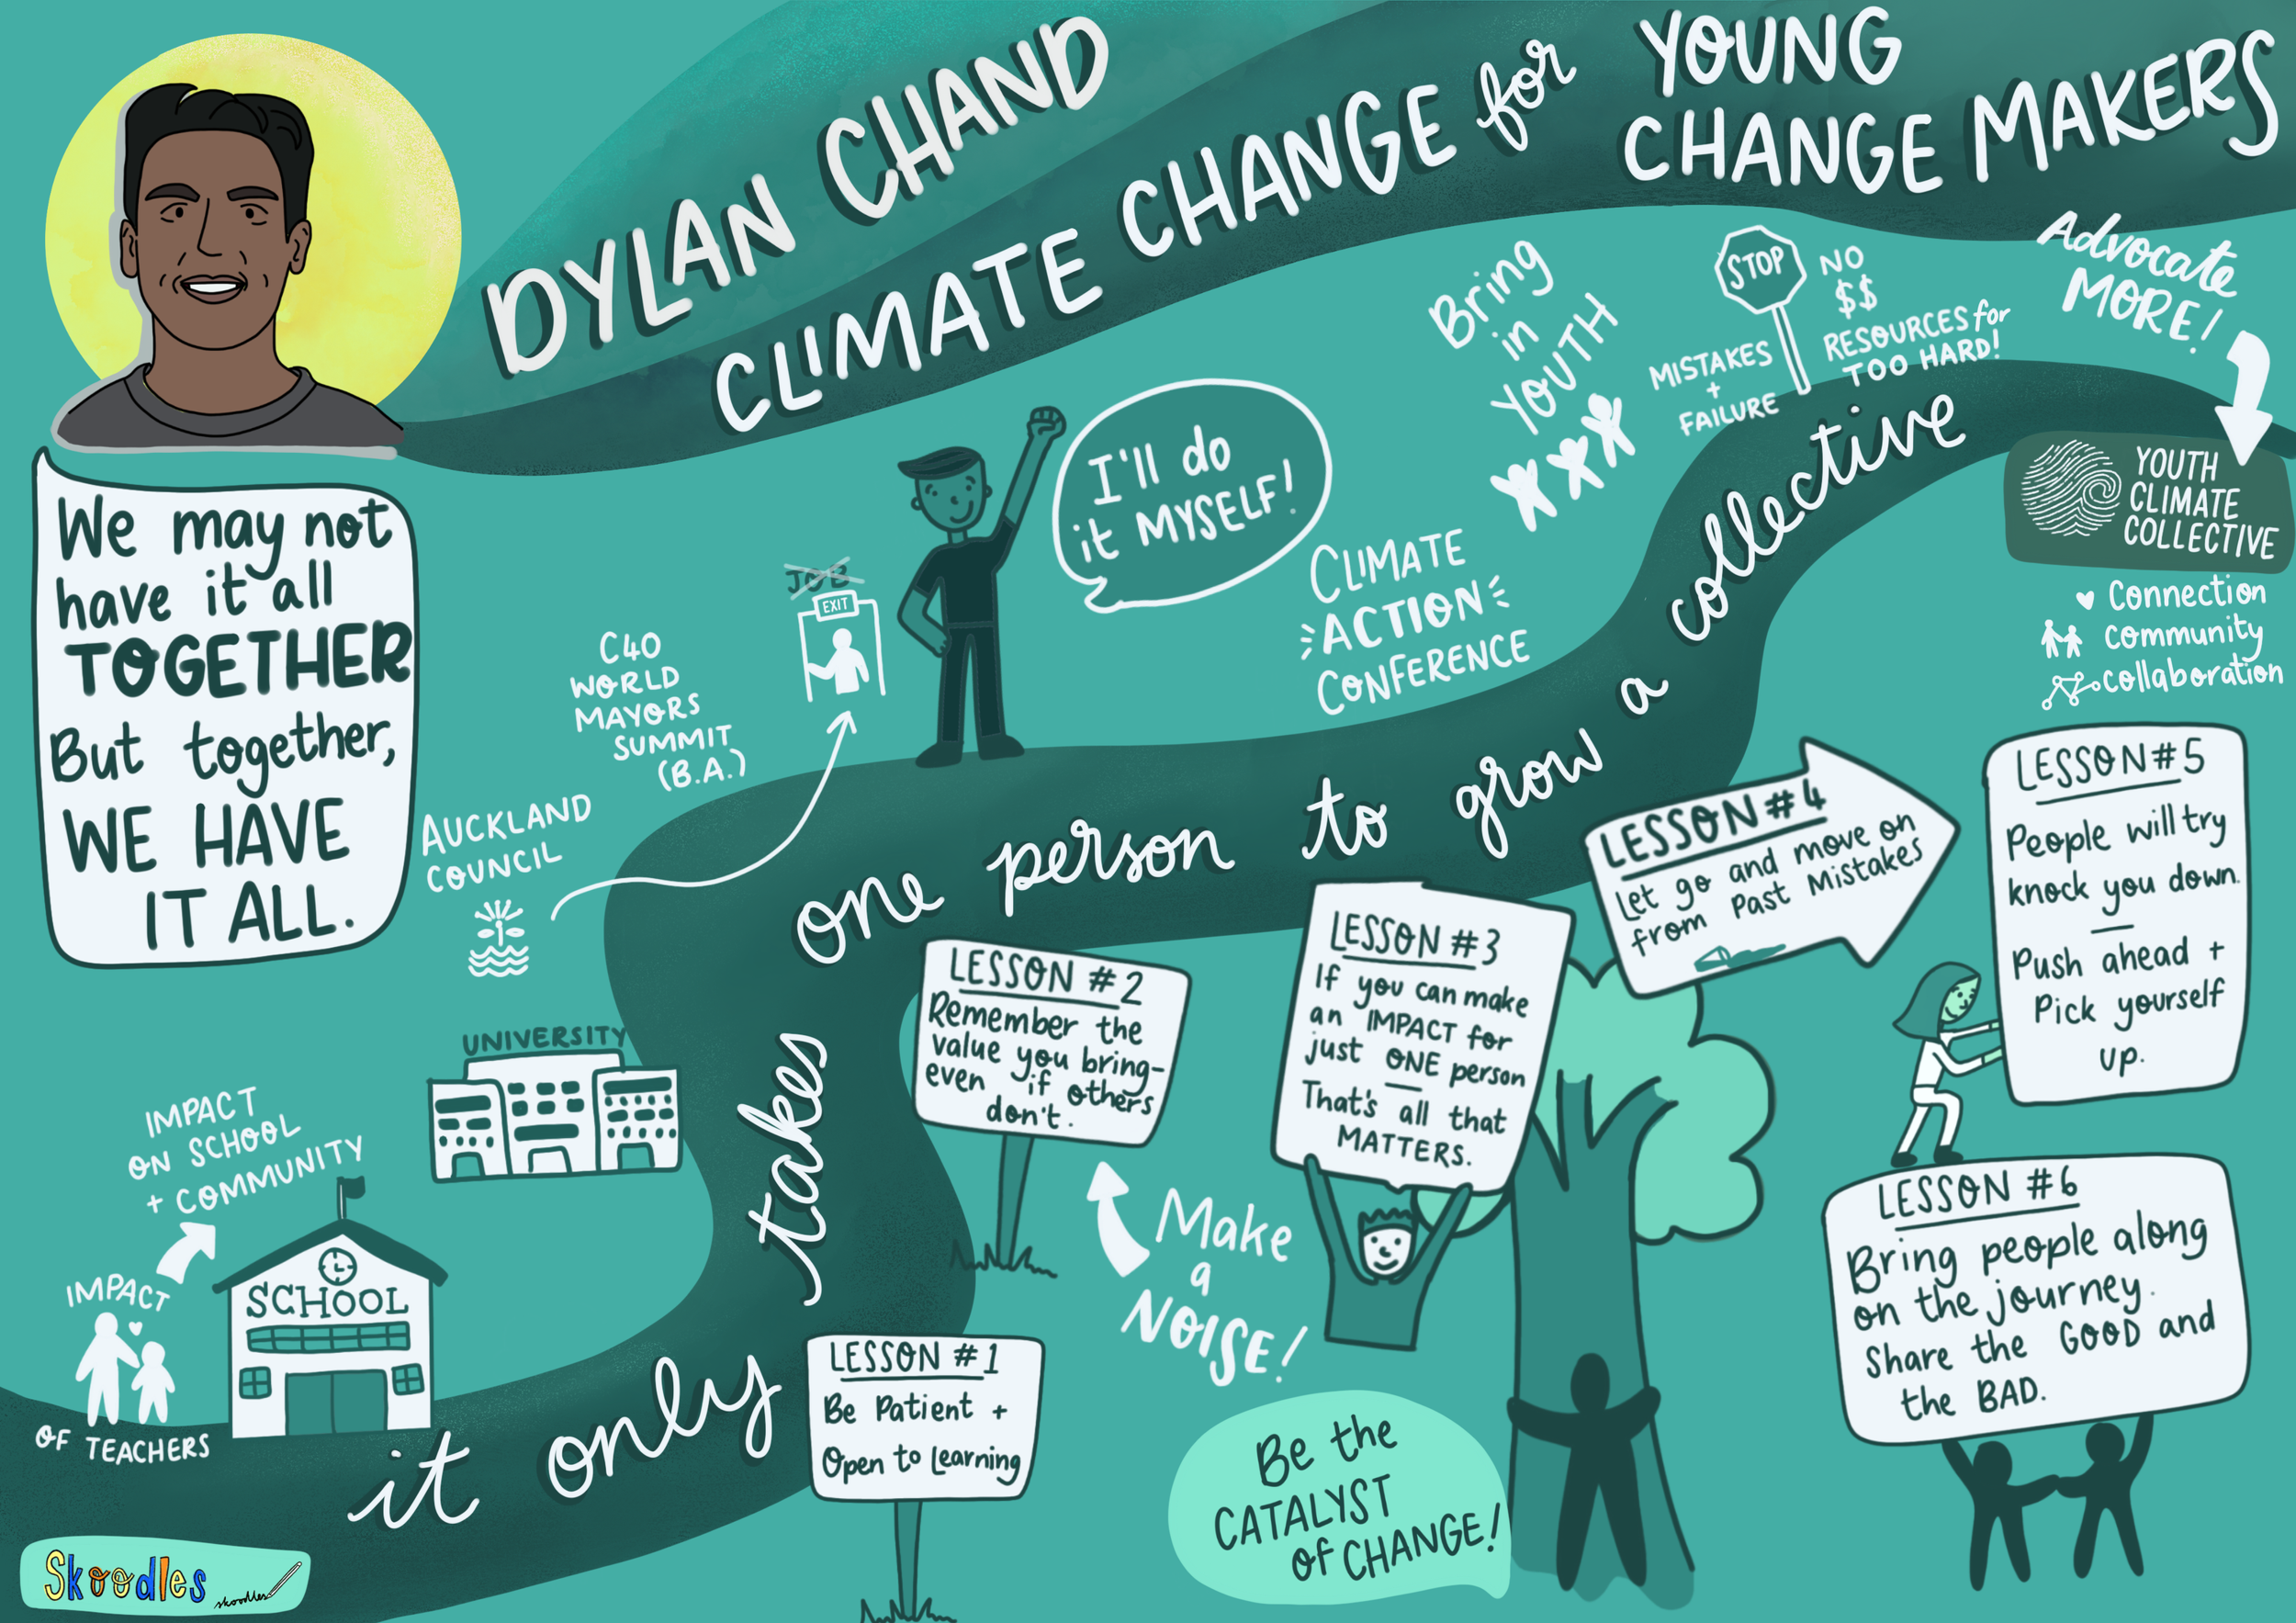 DYLAN CHAND
CLIMATE CHANGE for YOUNG
CHANGE MAKERS
We may not
have it all
TOGETHER
But together,
WE HAVE
IT ALL.
it only takes one person to grow a collective
IMPACT
OF TEACHERS
IMPACT
ON SCHOOL
+ COMMUNITY
SCHOOL
UNIVERSITY
AUCKLAND
COUNCIL
C40
WORLD
MAYORS
SUMMIT
(B.A.)
JOB
EXIT
I'll do
it MYSELF!
CLIMATE
ACTION
CONFERENCE
Bring
in
YOUTH
STOP
MISTAKES
+
FAILURE
NO
$$
RESOURCES for
TOO HARD!
Advocate
MORE!
YOUTH
CLIMATE
COLLECTIVE
Connection
community
collaboration
LESSON #1
Be Patient +
Open to Learning
LESSON #2
Remember the
value you bring-
even if others
don't.
Make
a
NOISE!
LESSON #3
If you can make
an IMPACT for
just ONE person
That's all that
MATTERS.
Be the
CATALYST
of CHANGE!
LESSON #4
Let go and move on
from Past Mistakes
LESSON #5
People will try
knock you down.
Push ahead +
Pick yourself
up.
LESSON #6
Bring people along
on the journey.
Share the GOOD and
the BAD.
Skoodles
skoodles